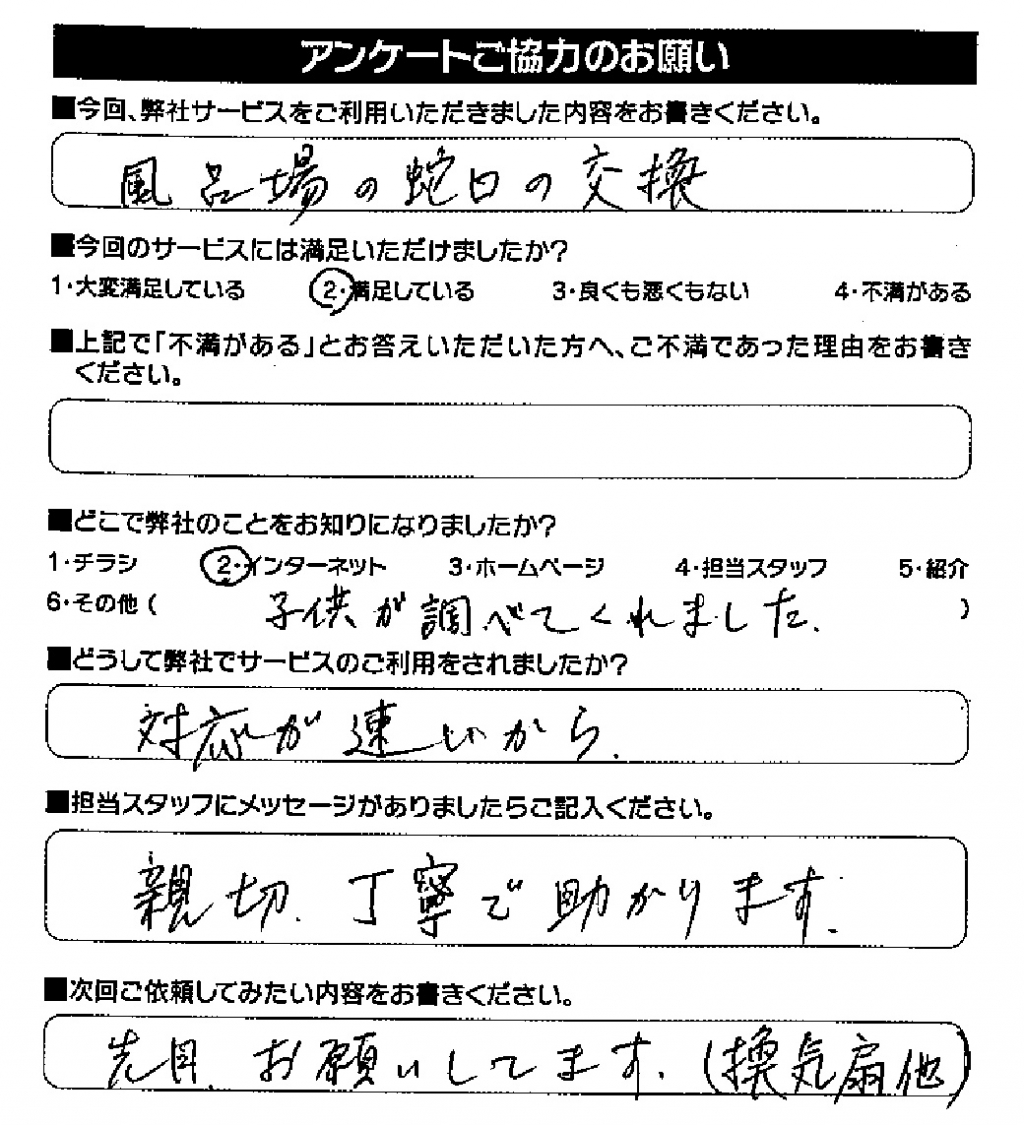 アンケートご協力のお願い
■今回、弊社サービスをご利用いただきました内容をお書きください。
風呂場の蛇口の交換
■今回のサービスには満足いただけましたか?
1・大変満足している 2・満足している 3・良くも悪くもない 4・不満がある
■上記で「不満がある」とお答えいただいた方へ、ご不満であった理由をお書き
ください。
■どこで弊社のことをお知りになりましたか?
1・チラシ 2・インターネット 3・ホームページ 4・担当スタッフ 5・紹介
6・その他( 子供が調べてくれました. )
■どうして弊社でサービスのご利用をされましたか?
対応が速いから.
■担当スタッフにメッセージがありましたらご記入ください。
親切.丁寧で助かります.
■次回ご依頼してみたい内容をお書きください。
先日.お願いしてます.(換気扇他)